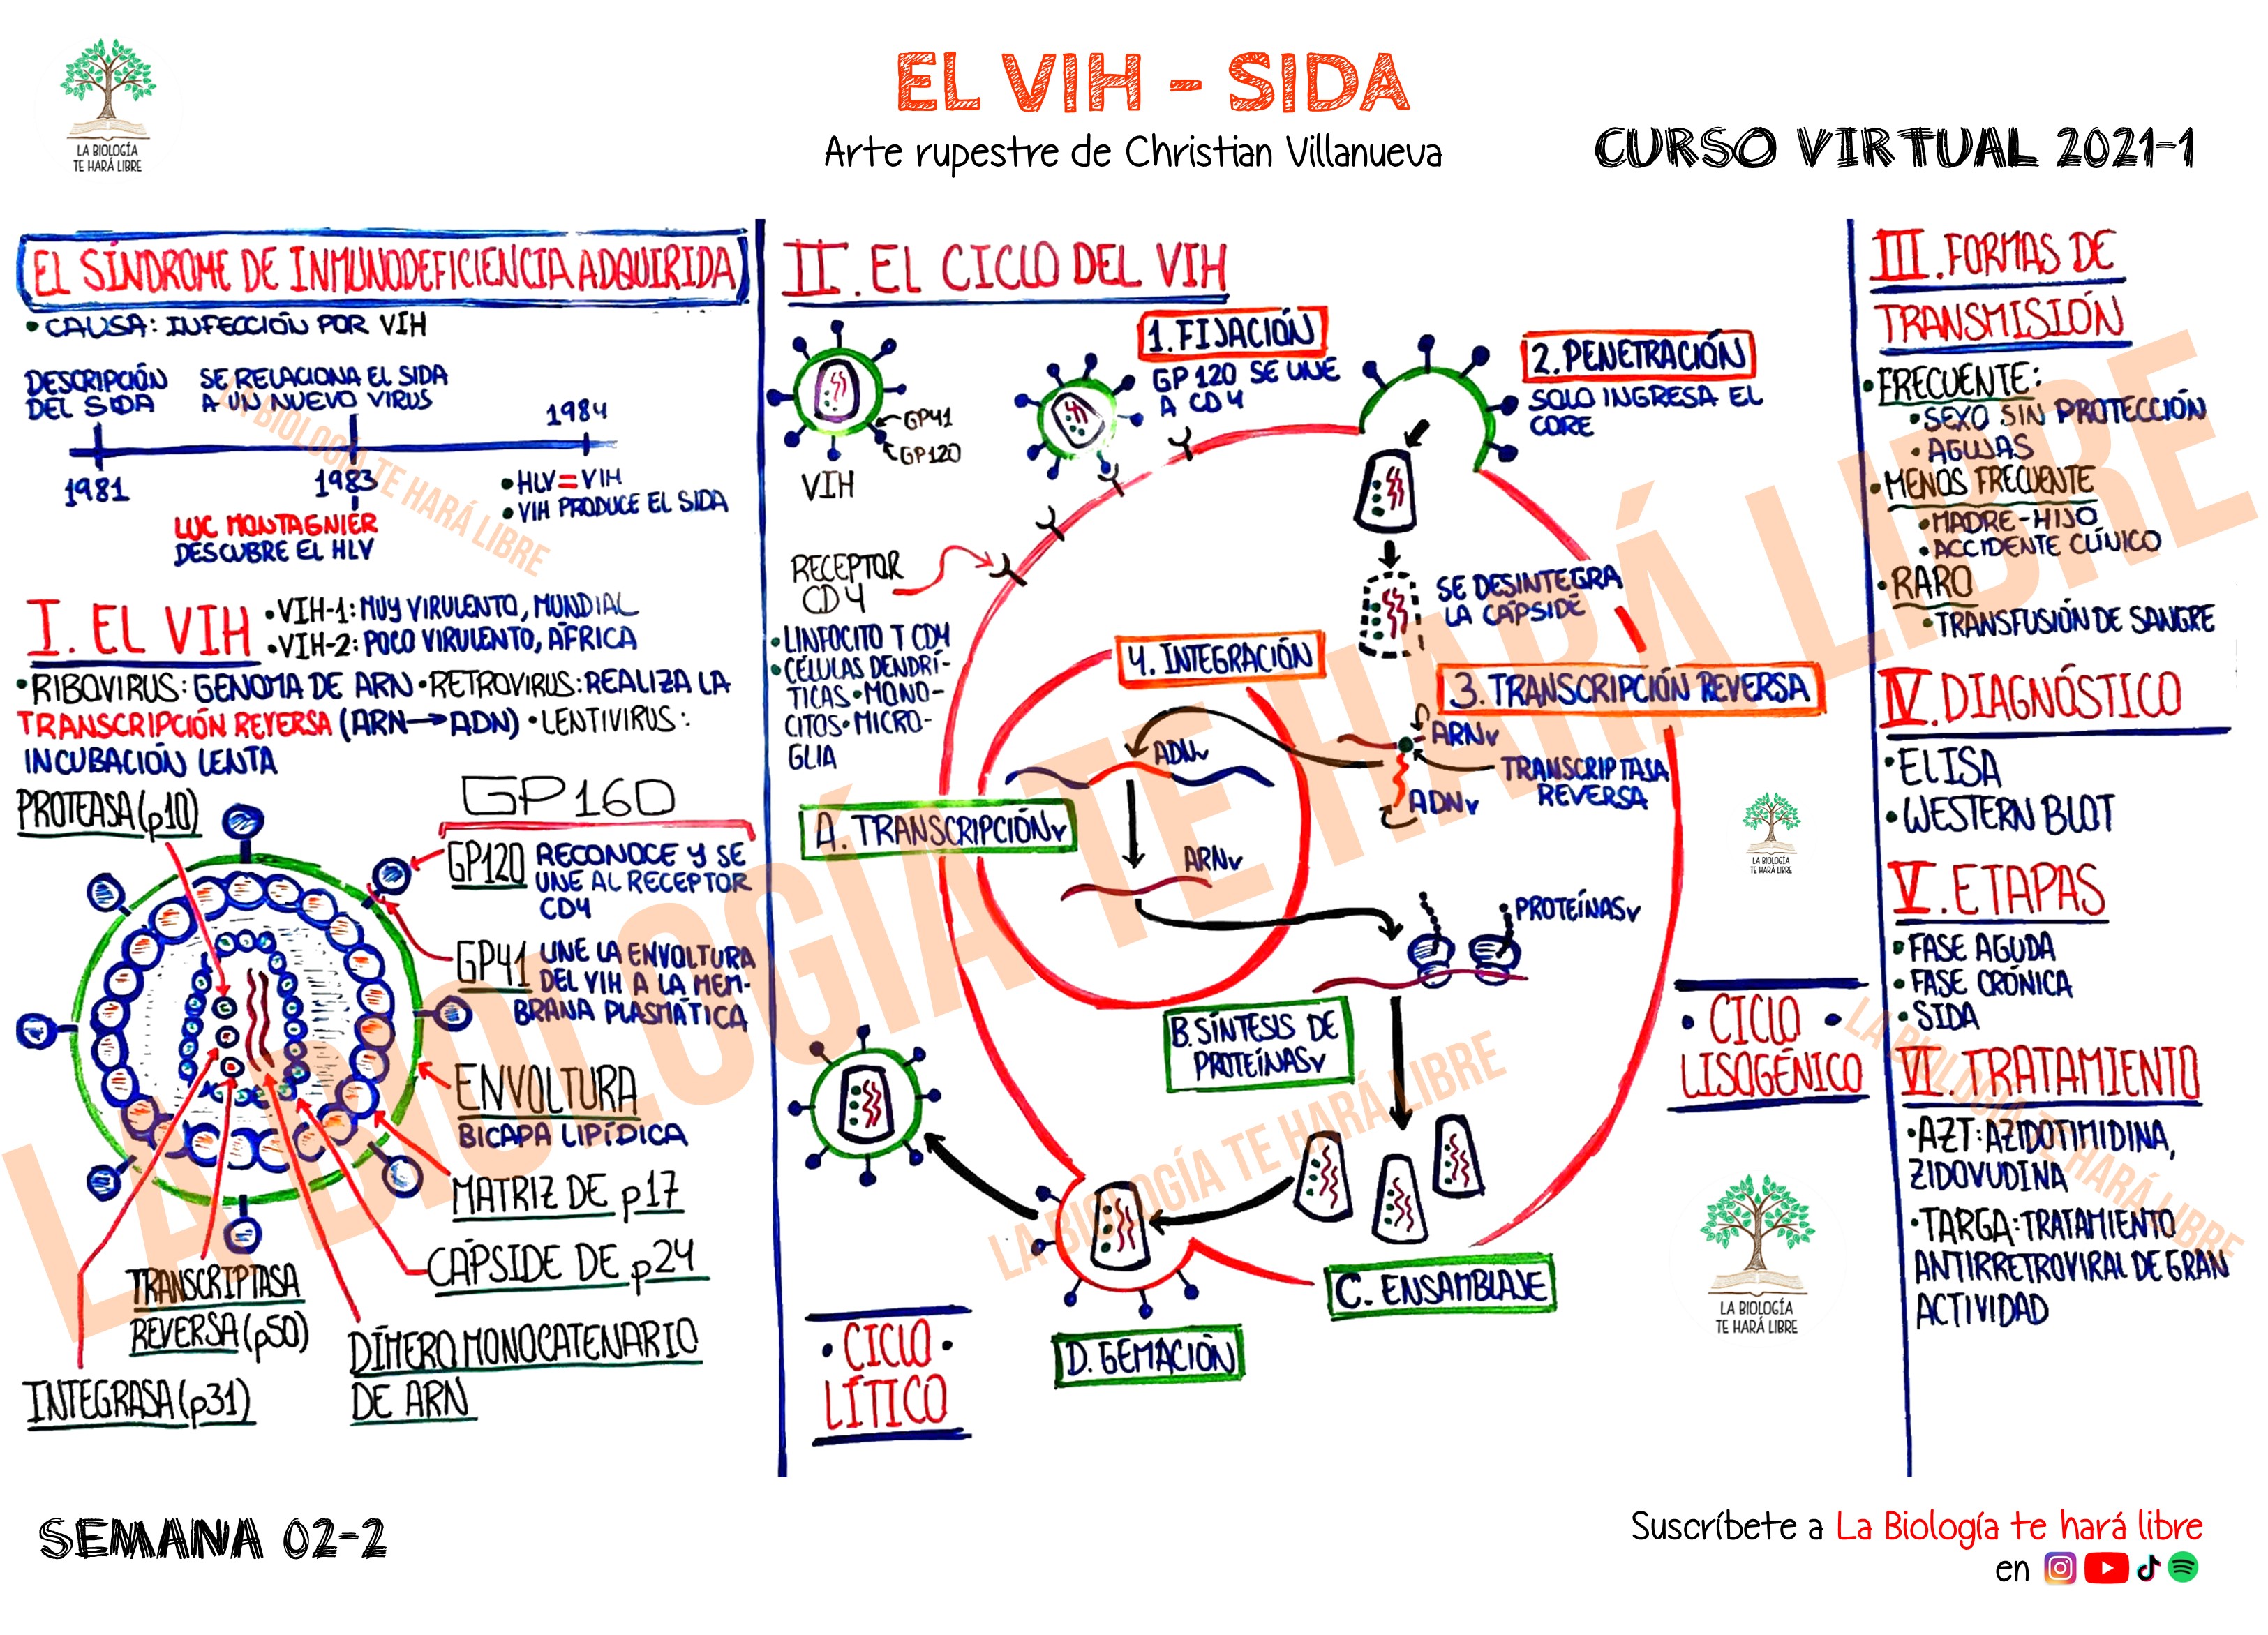 LA BIOLOGÍA
TE HARÁ LIBRE
EL VIH - SIDA
Arte rupestre de Christian Villanueva
CURSO VIRTUAL 2021-1
EL SÍNDROME DE INMUNODEFICIENCIA ADQUIRIDA
• CAUSA: INFECCIÓN POR VIH
DESCRIPCIÓN
DEL SIDA
SE RELACIONA EL SIDA
A UN NUEVO VIRUS
1984
1981
1983
LUC MONTAGNIER
DESCUBRE EL HLV
• HLV = VIH
• VIH PRODUCE EL SIDA
I. EL VIH
• VIH-1: MUY VIRULENTO, MUNDIAL
• VIH-2: POCO VIRULENTO, ÁFRICA
• RIBOVIRUS: GENOMA DE ARN • RETROVIRUS: REALIZA LA
TRANSCRIPCIÓN REVERSA (ARN→ADN) • LENTIVIRUS:
INCUBACIÓN LENTA
PROTEASA (p10)
GP160
GP120 RECONOCE Y SE
UNE AL RECEPTOR
CD4
GP41 UNE LA ENVOLTURA
DEL VIH A LA MEM-
BRANA PLASMÁTICA
ENVOLTURA
BICAPA LIPÍDICA
MATRIZ DE p17
CÁPSIDE DE p24
TRANSCRIPTASA
REVERSA (p50)
DÍMERO MONOCATENARIO
DE ARN
INTEGRASA (p31)
II. EL CICLO DEL VIH
GP41
GP120
VIH
1. FIJACIÓN
GP120 SE UNE
A CD4
2. PENETRACIÓN
SOLO INGRESA EL
CORE
RECEPTOR
CD4
• LINFOCITO T CD4
• CÉLULAS DENDRÍ-
TICAS • MONO-
CITOS • MICRO-
GLIA
SE DESINTEGRA
LA CÁPSIDE
3. TRANSCRIPCIÓN REVERSA
ARNv
TRANSCRIPTASA
REVERSA
ADNv
4. INTEGRACIÓN
ADNv
A. TRANSCRIPCIÓNv
ARNv
PROTEÍNASv
B. SÍNTESIS DE
PROTEÍNASv
C. ENSAMBLAJE
D. GEMACIÓN
• CICLO •
LÍTICO
LA BIOLOGÍA
TE HARÁ LIBRE
• CICLO •
LISOGÉNICO
LA BIOLOGÍA
TE HARÁ LIBRE
III. FORMAS DE
TRANSMISIÓN
• FRECUENTE:
• SEXO SIN PROTECCIÓN
• AGUJAS
• MENOS FRECUENTE
• MADRE-HIJO
• ACCIDENTE CLÍNICO
• RARO
• TRANSFUSIÓN DE SANGRE
IV. DIAGNÓSTICO
• ELISA
• WESTERN BLOT
V. ETAPAS
• FASE AGUDA
• FASE CRÓNICA
• SIDA
VI. TRATAMIENTO
• AZT: AZIDOTIMIDINA,
ZIDOVUDINA
• TARGA: TRATAMIENTO
ANTIRRETROVIRAL DE GRAN
ACTIVIDAD
LA BIOLOGÍA TE HARÁ LIBRE
LA BIOLOGÍA TE HARÁ LIBRE
LA BIOLOGÍA TE HARÁ LIBRE
LA BIOLOGÍA TE HARÁ LIBRE
SEMANA 02-2
Suscríbete a La Biología te hará libre
en